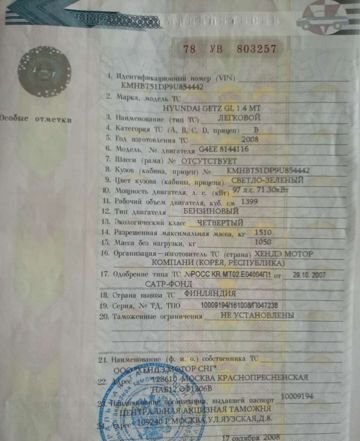 78 УВ 803257
Особые отметки
1. Идентификационный номер (VIN)
KMHBT51DP9U854442
2. Марка, модель ТС
HYUNDAI GETZ GL 1.4 MT
3. Наименование (тип ТС) ЛЕГКОВОЙ
4. Категория ТС (А, В, С, D, прицеп) B
5. Год изготовления ТС 2008
6. Модель, № двигателя G4EE 8144116
7. Шасси (рама) № ОТСУТСТВУЕТ
8. Кузов (кабина, прицеп) № KMHBT51DP9U854442
9. Цвет кузова (кабины, прицепа) СВЕТЛО-ЗЕЛЕНЫЙ
10. Мощность двигателя, л. с. (кВт) 97 л.с. 71.30кВт
11. Рабочий объем двигателя, куб. см 1399
12. Тип двигателя БЕНЗИНОВЫЙ
13. Экологический класс ЧЕТВЕРТЫЙ
14. Разрешенная максимальная масса, кг 1510
15. Масса без нагрузки, кг 1050
16. Организация-изготовитель ТС (страна) ХЕНДЭ МОТОР
КОМПАНИ (КОРЕЯ, РЕСПУБЛИКА)
17. Одобрение типа ТС № РОСС KR.MT02.E04004П1 от 29.10.2007
САТР-ФОНД
18. Страна вывоза ТС ФИНЛЯНДИЯ
19. Серия, № ТД, ТПО 10009194/161008/П047238
20. Таможенные ограничения НЕ УСТАНОВЛЕНЫ
21. Наименование (ф. и. о.) собственника ТС
ООО "ХЕНДЭ МОТОР СНГ"
22. 123610 МОСКВА КРАСНОПРЕСНЕНСКАЯ
НАБ12
23. Наименование организации, выдавшей паспорт 10009194
ЦЕНТРАЛЬНАЯ АКЦИЗНАЯ ТАМОЖНЯ
109240 Г.МОСКВА,УЛ.ЯУЗСКАЯ,Д.8.
17 октября 2008